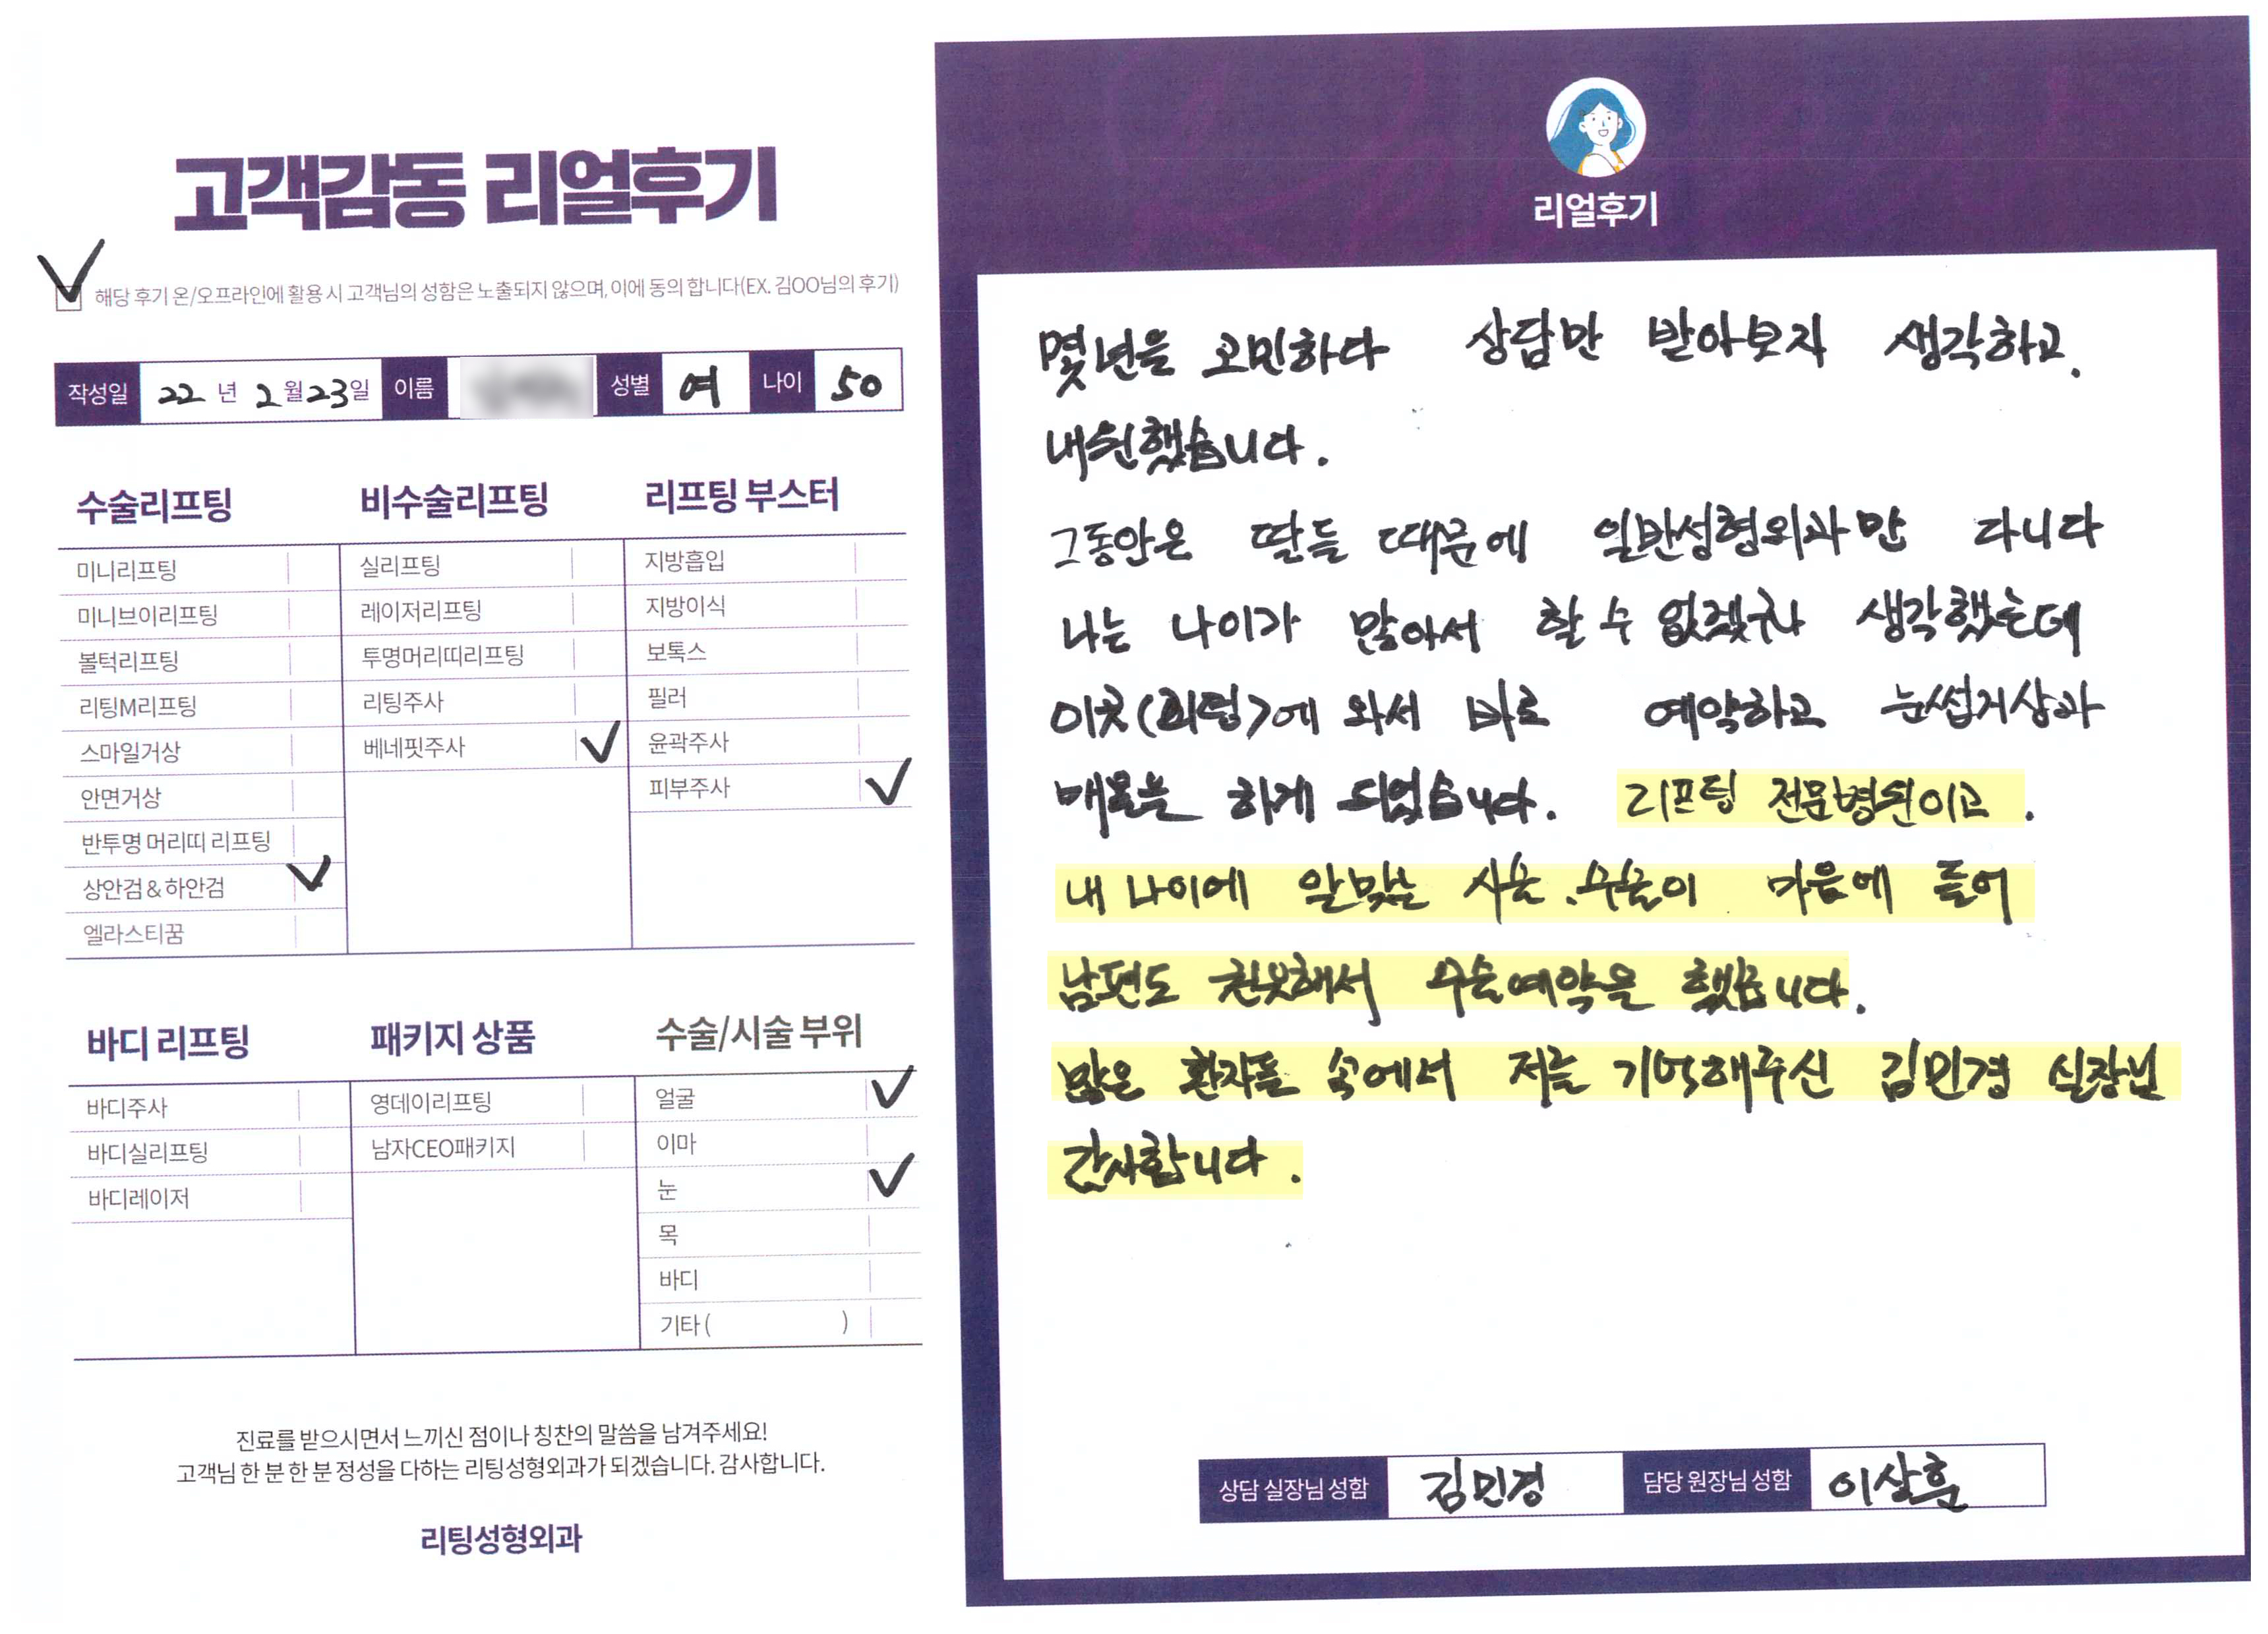 고객감동 리얼후기
해당 후기 온/오프라인에 활용 시 고객님의 성함은 노출되지 않으며, 이에 동의 합니다(EX. 김OO님의 후기)
작성일 22 년 2 월 23 일 이름 성별 여 나이 50
수술리프팅
미니리프팅
미니브이리프팅
볼턱리프팅
리팅M리프팅
스마일거상
안면거상
반투명 머리띠 리프팅
상안검 & 하안검
엘라스티꿈
비수술리프팅
실리프팅
레이저리프팅
투명머리띠리프팅
리팅주사
베네핏주사
리프팅 부스터
지방흡입
지방이식
보톡스
필러
윤곽주사
피부주사
바디 리프팅
바디주사
바디실리프팅
바디레이저
패키지 상품
영데이리프팅
남자CEO패키지
수술/시술 부위
얼굴
이마
눈
목
바디
기타 ( )
진료를 받으시면서 느끼신 점이나 칭찬의 말씀을 남겨주세요!
고객님 한 분 한 분 정성을 다하는 리팅성형외과가 되겠습니다. 감사합니다.
리팅성형외과
리얼후기
몇년을 고민하다 상담만 받아보자 생각하고.
내원했습니다.
그동안은 딸들 때문에 일반성형외과만 다니다
나는 나이가 많아서 할 수 없겠구나 생각했는데
이곳(리팅)에 와서 바로 예약하고 눈썹거상과
매몰을 하게 되었습니다. 리프팅 전문병원이고.
내 나이에 알맞는 시술.수술이 마음에 들어
남편도 권유해서 수술예약을 했습니다.
많은 환자들 속에서 저를 기억해주신 김민경 실장님
감사합니다.
상담 실장님 성함 김민경 담당 원장님 성함 이상훈